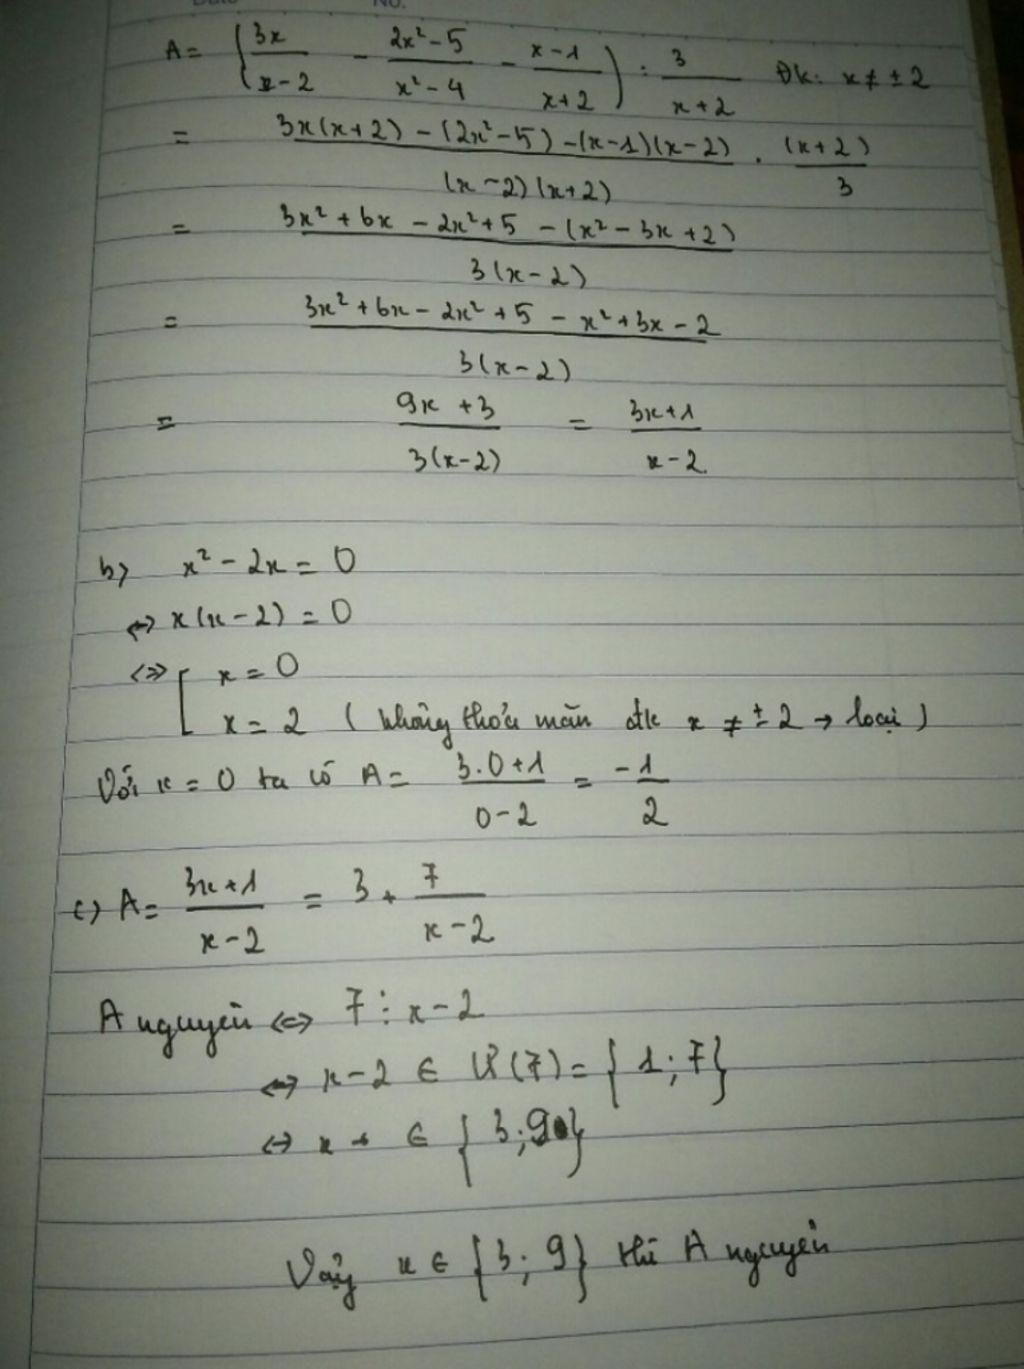 No.
A = (3x/(x-2) - (2x²-5)/(x²-4) - (x-1)/(x+2)) : 3/(x+2) Đk: x ≠ ±2
= (3x(x+2) - (2x²-5) - (x-1)(x-2))/((x-2)(x+2)) . (x+2)/3
= (3x² + 6x - 2x² + 5 - (x² - 3x + 2))/(3(x-2))
= (3x² + 6x - 2x² + 5 - x² + 3x - 2)/(3(x-2))
= (9x + 3)/(3(x-2)) = (3x+1)/(x-2)
b) x² - 2x = 0
⇔ x(x-2) = 0
⇔ [ x = 0
x = 2 ( không thỏa mãn đk x ≠ ±2 → loại )
Với x = 0 ta có A = (3.0+1)/(0-2) = -1/2
c) A = (3x+1)/(x-2) = 3 + 7/(x-2)
A nguyên ⇔ 7 ⋮ x-2
⇔ x-2 ∈ Ư(7) = {1; 7}
⇔ x ∈ {3; 9}
Vậy x ∈ {3; 9} thì A nguyên